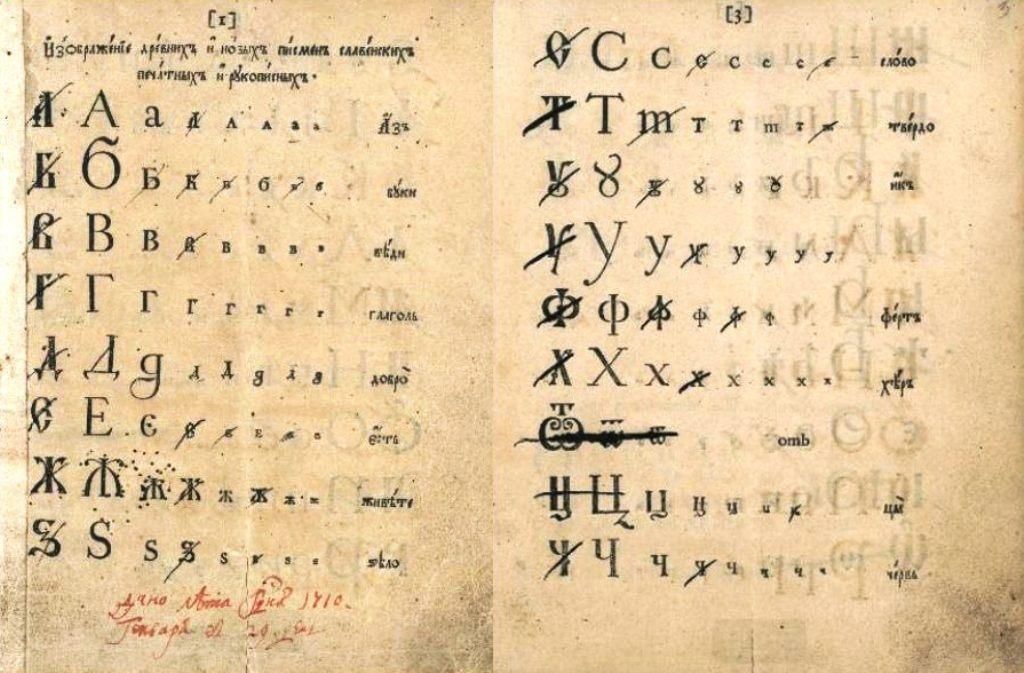 [1]
И҆зѡбраже́нїе дре́внихъ и҆ но́выхъ пи́сменъ славе́нскихъ
печа́тныхъ и҆ рꙋкопи́сныхъ.
А А а А а а а а а҆́зъ
Б Б Б Б б б б б бꙋ́ки
В В В В в в в в вѣ́ди
Г Г Г Г г г г г глаго́ль
Д Д д д Д д д д добро̀
Е Е є е е е е е є҆́сть
Ж Ж Ж Ж ж ж ж ж живѣ́те
Ѕ Ѕ ѕ Ѕ ѕ ѕ ѕ ѕ ѕѣло̀
1710.
[3]
С С с с с с с с сло́во
Т Т т т т т т т тве́рдо
Ꙋ Ꙋ ꙋ ꙋ ꙋ ꙋ ꙋ и҆́къ
У У у у у у у у
Ф ф ф ф ф ф фе́ртъ
Х Х х х х х х х хѣ́ръ
Ѿ ѿ ѿ отъ
Ц Ц ц ц ц ц ц цы̀
Ч Ч ч ч ч ч ч ч че́рвь